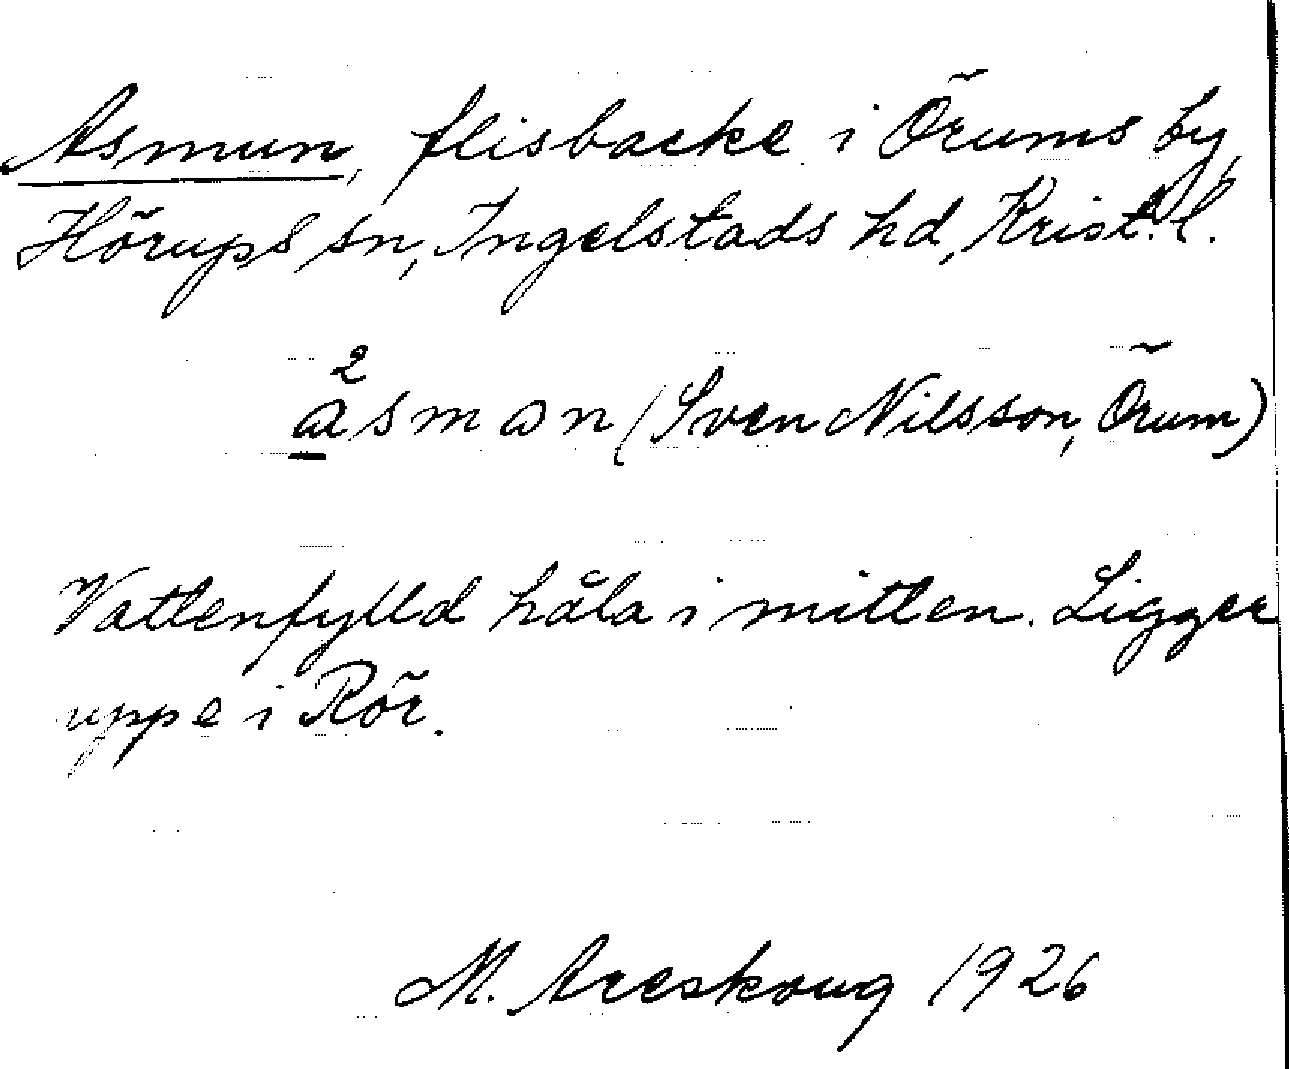 Asmun, flisbacke i Örums by,
Hörups sn, Ingelstads hd, Krist. l.
2
åsman (Sven Nilsson, Örum)
Vattenfylld håla i mitten. Ligger
uppe i Rör.
M. Areskoug 1926